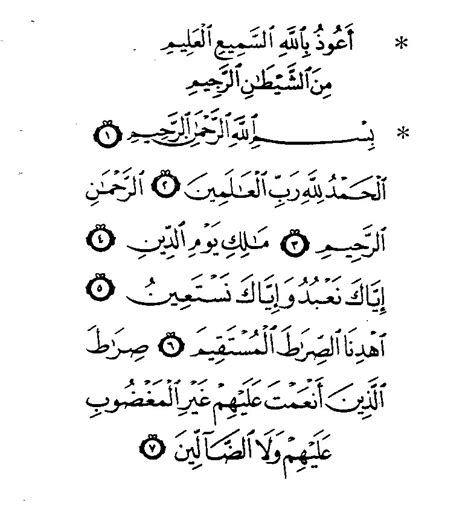 * أَعُوذُ بِاللَّهِ السَّمِيعِ الْعَلِيمِ
مِنَ الشَّيْطَٰنِ الرَّجِيمِ
* بِسْمِ اللَّهِ الرَّحْمَٰنِ الرَّحِيمِ ١
الْحَمْدُ لِلَّهِ رَبِّ الْعَٰلَمِينَ ٢ الرَّحْمَٰنِ
الرَّحِيمِ ٣ مَٰلِكِ يَوْمِ الدِّينِ ٤
إِيَّاكَ نَعْبُدُ وَإِيَّاكَ نَسْتَعِينُ ٥
اهْدِنَا الصِّرَٰطَ الْمُسْتَقِيمَ ٦ صِرَٰطَ
الَّذِينَ أَنْعَمْتَ عَلَيْهِمْ غَيْرِ الْمَغْضُوبِ
عَلَيْهِمْ وَلَا الضَّآلِّينَ ٧